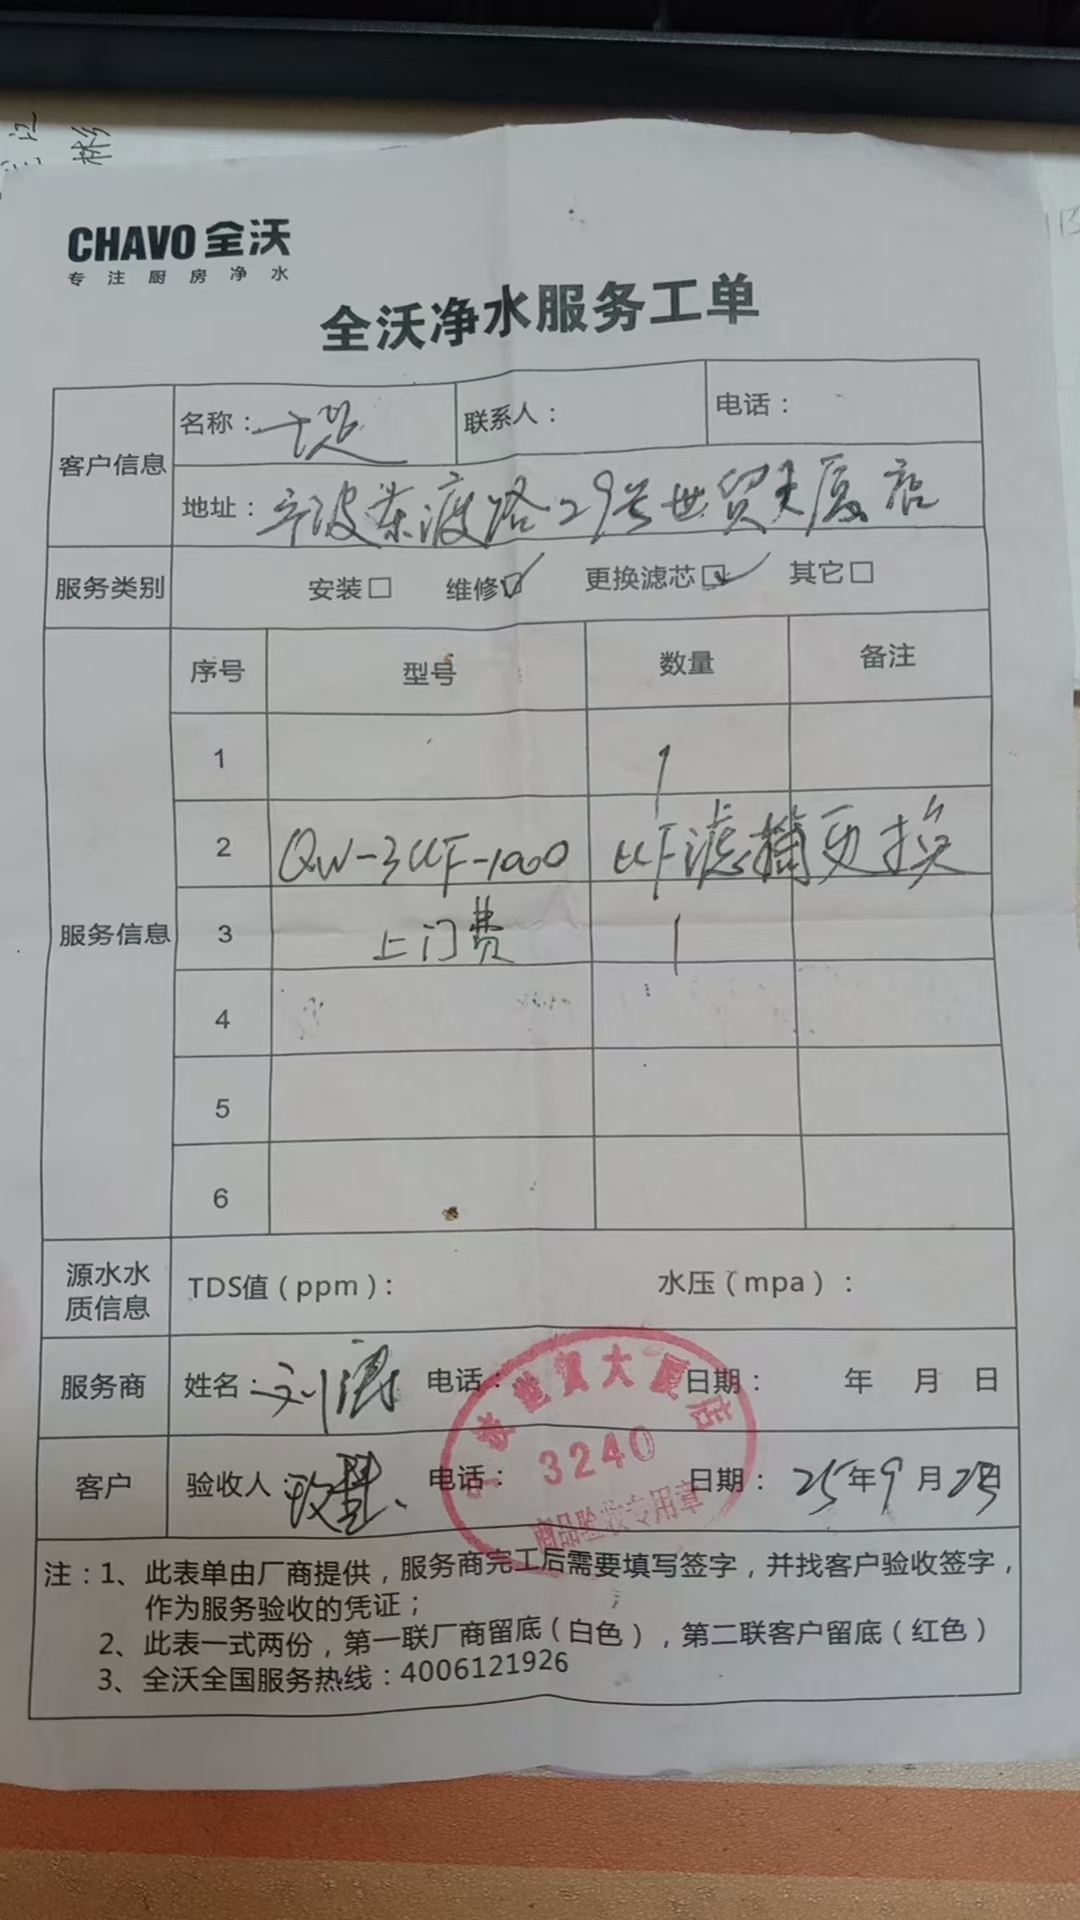 CHAVO 全沃
专注厨房净水
全沃净水服务工单
客户信息 名称： 联系人： 电话：
地址：宁波茶渡路29号世贸大厦店
服务类别 安装□ 维修☑ 更换滤芯☑ 其它□
服务信息 序号 型号 数量 备注
1 1
2 QW-3UF-1000 UF滤桶更换
3 上门费 1
4
5
6
源水水质信息 TDS值（ppm）： 水压（mpa）：
服务商 姓名：刘 电话： 日期： 年 月 日
世贸大厦店
3240
商品验收专用章
客户 验收人 电话： 日期：25年9月 日
注：1、此表单由厂商提供，服务商完工后需要填写签字，并找客户验收签字，
作为服务验收的凭证；
2、此表一式两份，第一联厂商留底（白色），第二联客户留底（红色）
3、全沃全国服务热线：4006121926